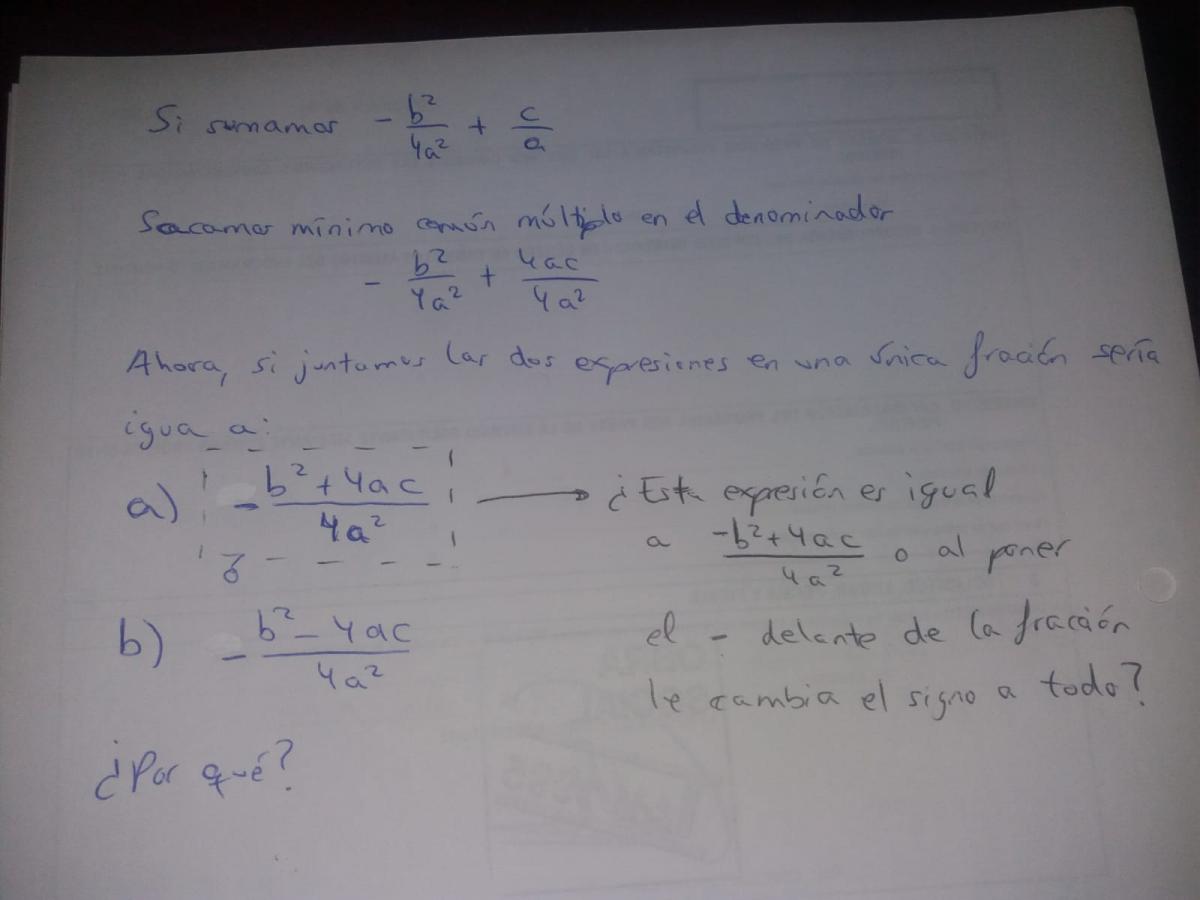 Si sumamos - b²/4a² + c/a
Sacamos mínimo común múltiplo en el denominador
- b²/4a² + 4ac/4a²
Ahora, si juntamos las dos expresiones en una única fracción sería
igua a:
a) - (b² + 4ac)/4a² → ¿Esta expresión es igual
a (-b² + 4ac)/4a² o al poner
el - delante de la fracción
le cambia el signo a todo?
o
b) - (b² - 4ac)/4a²
¿Por qué?